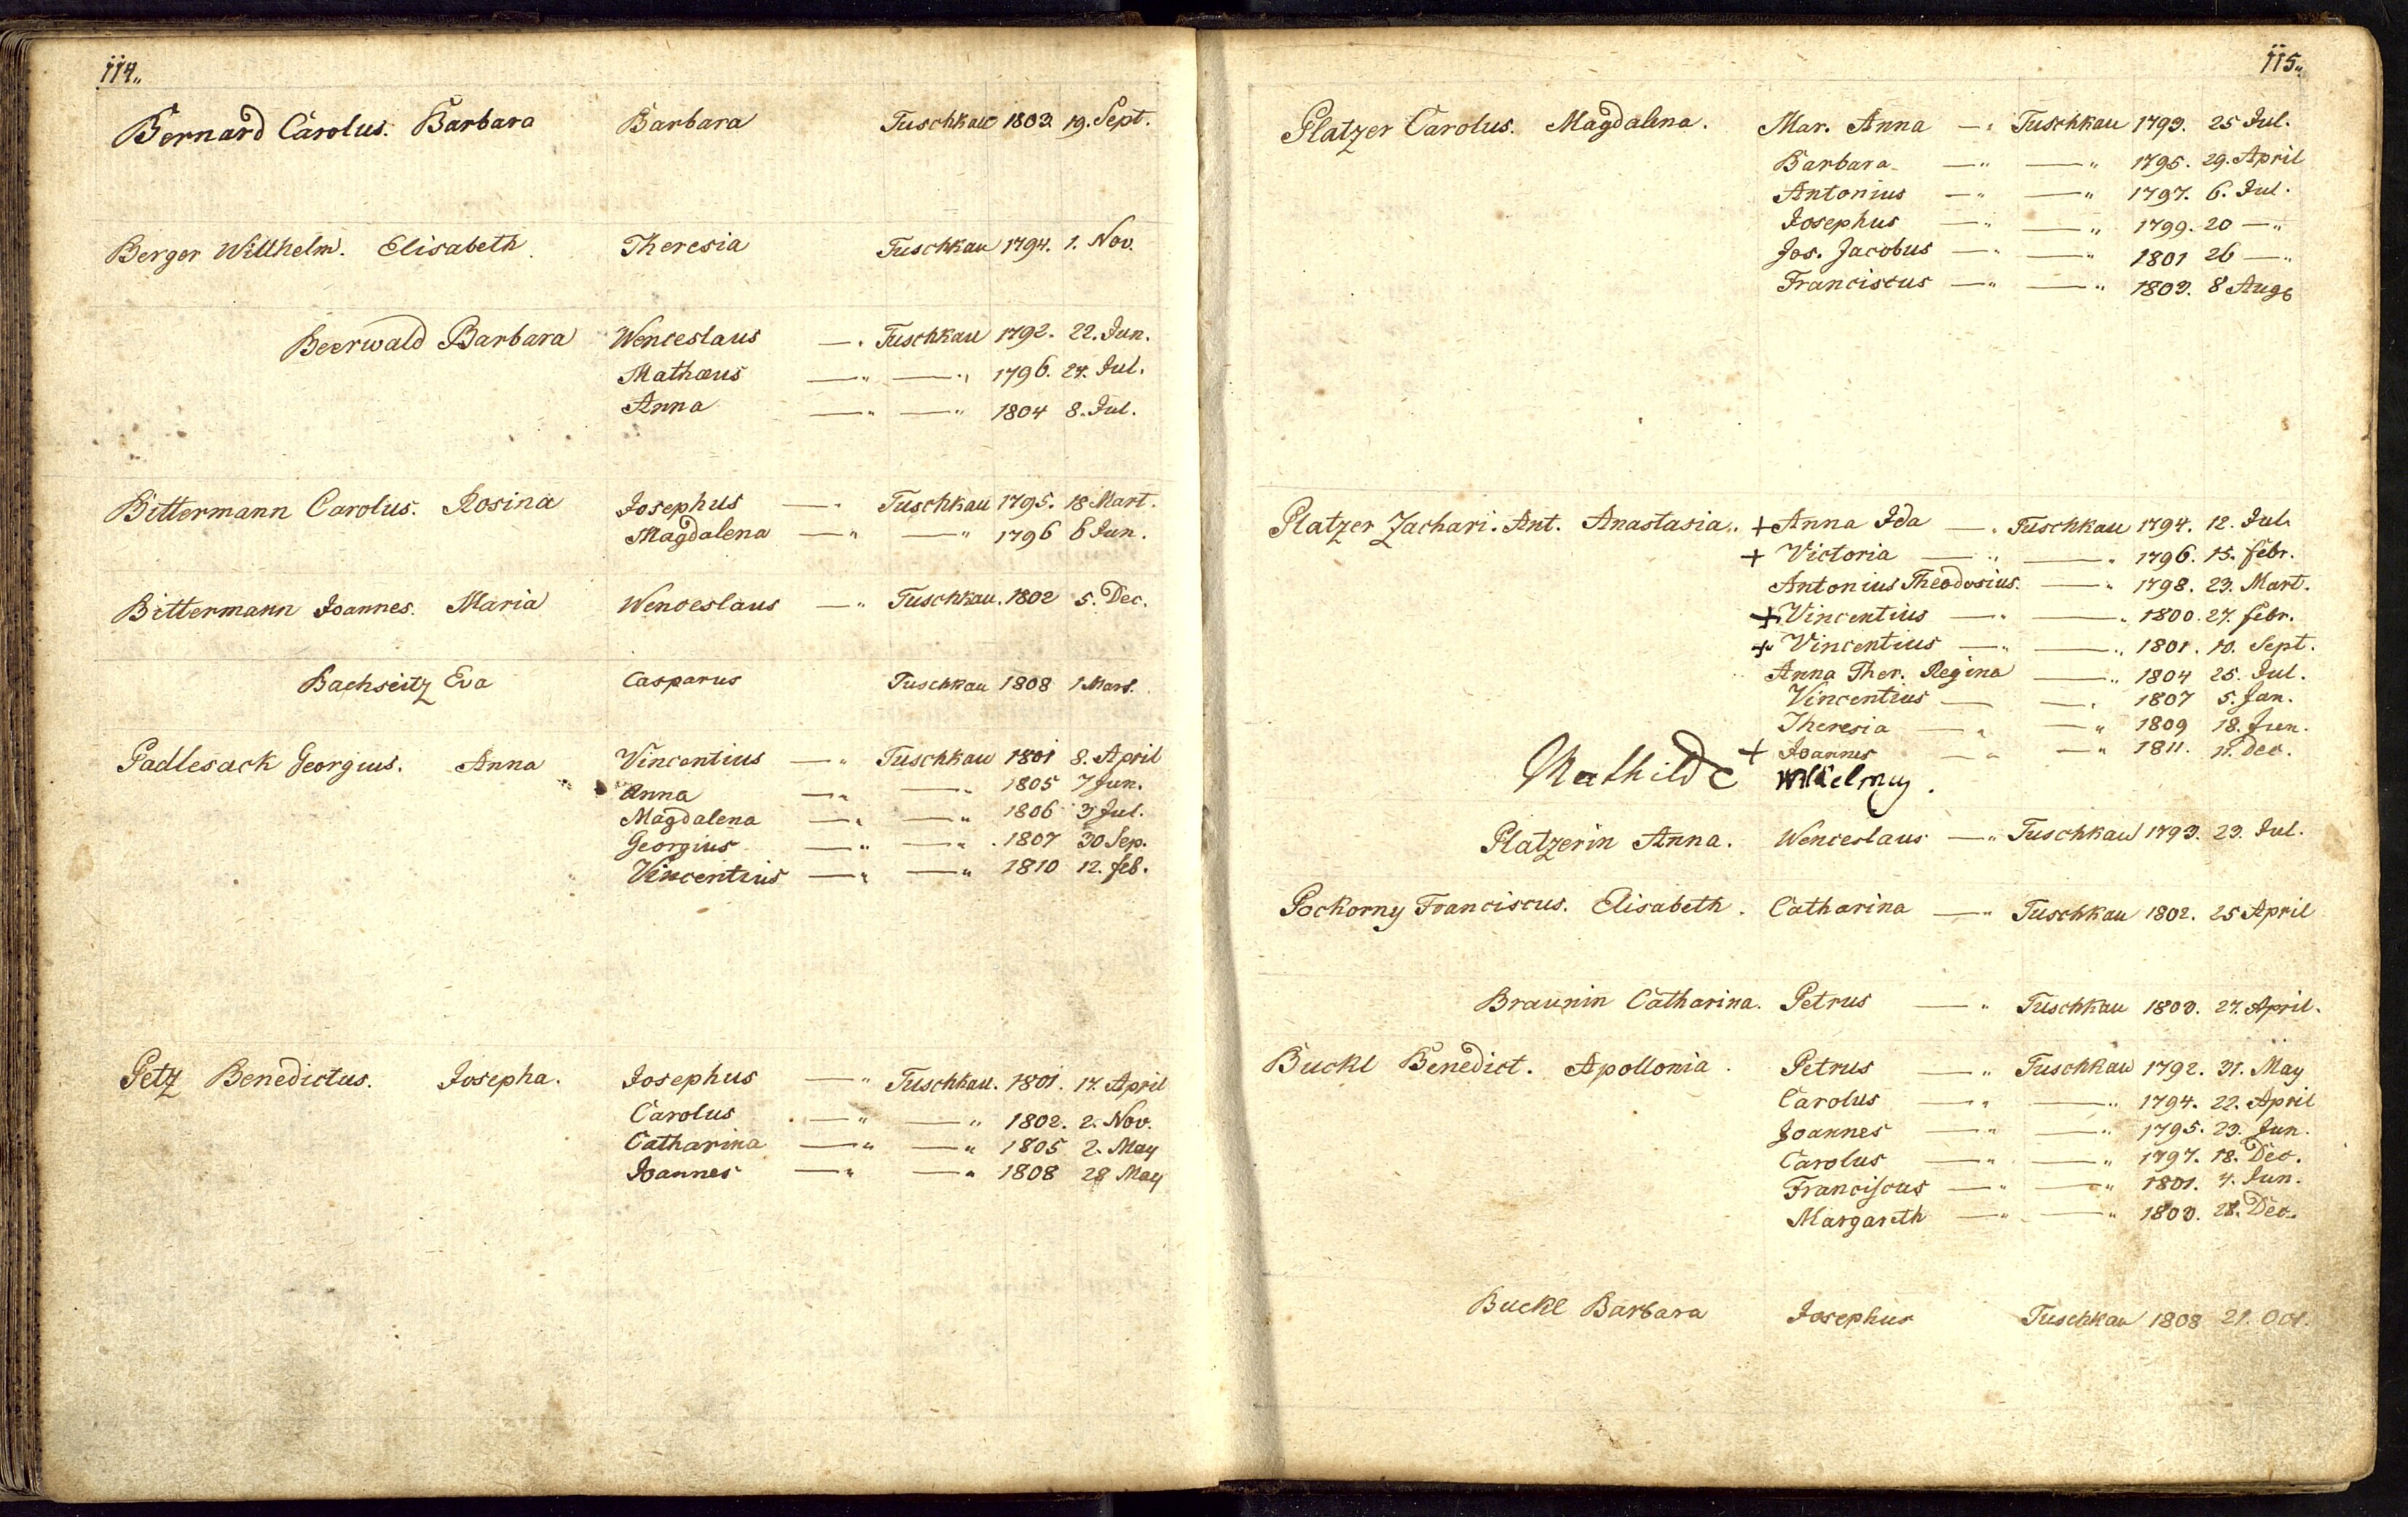 114.
Bernard Carolus. Barbara Barbara Tuschkau 1803. 19. Sept.
Berger Willhelm. Elisabeth. Theresia Tuschkau 1794. 1. Nov.
Beerwald Barbara Wenceslaus —„ Tuschkau 1792. 22. Jun.
Mathæus —„ —„ 1796. 24. Jul.
Anna —„ —„ 1804 8. Jul.
Bittermann Carolus. Rosina Josephus —„ Tuschkau 1795. 18 Mart.
Magdalena —„ —„ 1796 8 Jun.
Bittermann Joannes. Maria Wenceslaus —„ Tuschkau. 1802 5. Dec.
Bachseitz Eva Casparus Tuschkau 1808 1 Mart.
Padlesack Georgius. Anna Vincentius —„ Tuschkau 1801 8. April
Anna —„ —„ 1805 7 Jun.
Magdalena —„ —„ 1806 3 Jul.
Georgius —„ —„ 1807 30 Sep.
Vincentius —„ —„ 1810 12. feb.
Petz Benedictus. Josepha. Josephus —„ Tuschkau. 1801. 17. April
Carolus —„ —„ 1802. 2. Nov.
Catharina —„ —„ 1805 2. May
Joannes —„ —„ 1808 28 May
115.
Platzer Carolus. Magdalena. Mar. Anna —„ Tuschkau 1793. 25 Jul.
Barbara —„ —„ 1795. 29. April
Antonius —„ —„ 1797. 6. Jul.
Josephus —„ —„ 1799. 20 —„
Jos. Jacobus —„ —„ 1801 26 —„
Franciscus —„ —„ 1803. 8 Aug
Platzer Zachari. Ant. Anastasia. + Anna Ida —„ Tuschkau 1794. 12. Jul.
+ Victoria —„ —„ 1796. 15. febr.
Antonius Theodosius. —„ 1798. 23. Mart.
+ Vincentius —„ —„ 1800. 27. febr.
+ Vincentius —„ —„ 1801. 10. Sept.
Anna Ther. Regina —„ 1804 25. Jul.
Vincentius — —„ 1807 5. Jan.
Theresia —„ —„ 1809 18. Jun.
+ Joannes —„ —„ 1811. 11. Dec.
Mathilde
Platzerin Anna. Wenceslaus —„ Tuschkau 1793. 23. Jul.
Pockorny Franciscus. Elisabeth. Catharina —„ Tuschkau 1802. 25 April
Braunin Catharina. Petrus —„ Tuschkau 1803. 27. April.
Buckl Benedict. Apollonia. Petrus —„ Tuschkau 1792. 31. May
Carolus —„ —„ 1794. 22. April
Joannes —„ —„ 1795. 23. Jun.
Carolus —„ —„ 1797. 18. Dec.
Franciscus —„ —„ 1801. 4. Jun.
Margareth —„ —„ 1803. 28. Dec.
Buckl Barbara Josephus Tuschkau 1808 21. Oct.